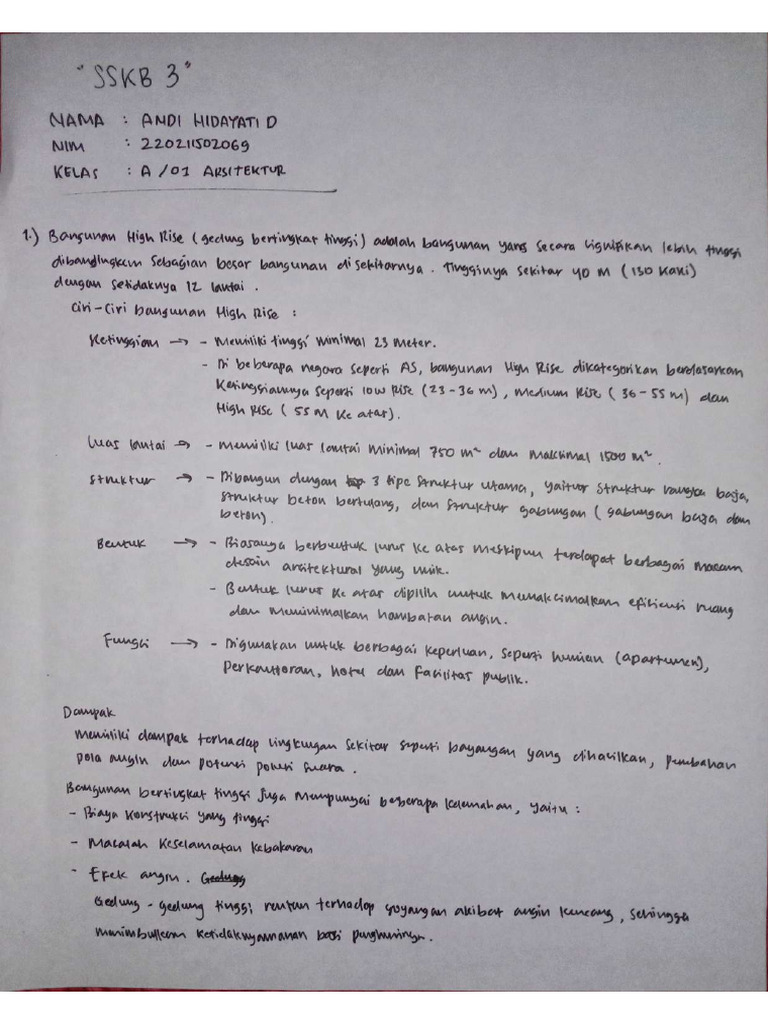 "SSKB 3"
NAMA : ANDI HIDAYATI D
NIM : 220211502069
KELAS : A/01 ARSITEKTUR
1.) Bangunan High Rise (gedung bertingkat tinggi) adalah bangunan yang secara signifikan lebih tinggi
dibandingkan sebagian besar bangunan di sekitarnya. Tingginya sekitar 40 M (130 kaki)
dengan setidaknya 12 lantai.
Ciri-Ciri bangunan High Rise :
Ketinggian → - Memiliki tinggi minimal 23 meter.
- Di beberapa negara seperti AS, bangunan High Rise dikategorikan berdasarkan
Ketinggiannya seperti low Rise (23-36 m), medium Rise (36-55 m) dan
High Rise (55 M ke atas).
Luas lantai → - Memiliki luas lantai minimal 750 m² dan maksimal 1500 m².
Struktur → - Dibangun dengan 3 tipe struktur utama, yaitu struktur rangka baja,
struktur beton bertulang, dan struktur gabungan (gabungan baja dan
beton).
Bentuk → - Biasanya berbentuk lurus ke atas meskipun terdapat berbagai macam
desain arsitektural yang unik.
- Bentuk lurus ke atas dipilih untuk memaksimalkan efisiensi ruang
dan meminimalkan hambatan angin.
Fungsi → - Digunakan untuk berbagai keperluan, seperti hunian (apartemen),
perkantoran, hotel dan fasilitas publik.
Dampak
Memiliki dampak terhadap lingkungan sekitar seperti bayangan yang dihasilkan, perubahan
pola angin dan potensi polusi suara.
Bangunan bertingkat tinggi juga mempunyai beberapa kelemahan, yaitu :
- Biaya konstruksi yang tinggi
- Masalah keselamatan kebakaran
- Efek angin. Gedung
Gedung-gedung tinggi rentan terhadap goyangan akibat angin kencang, sehingga
menimbulkan ketidaknyamanan bagi penghuninya.